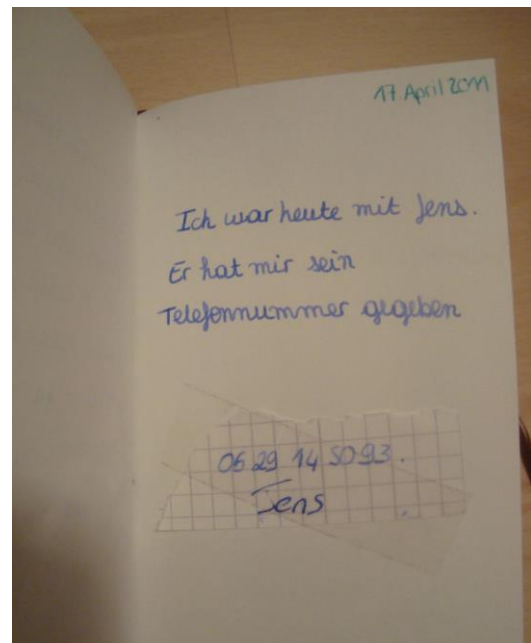 17. April 2011
Ich war heute mit Jens.
Er hat mir sein
Telefonnummer gegeben
06 29 14 50 93.
Jens